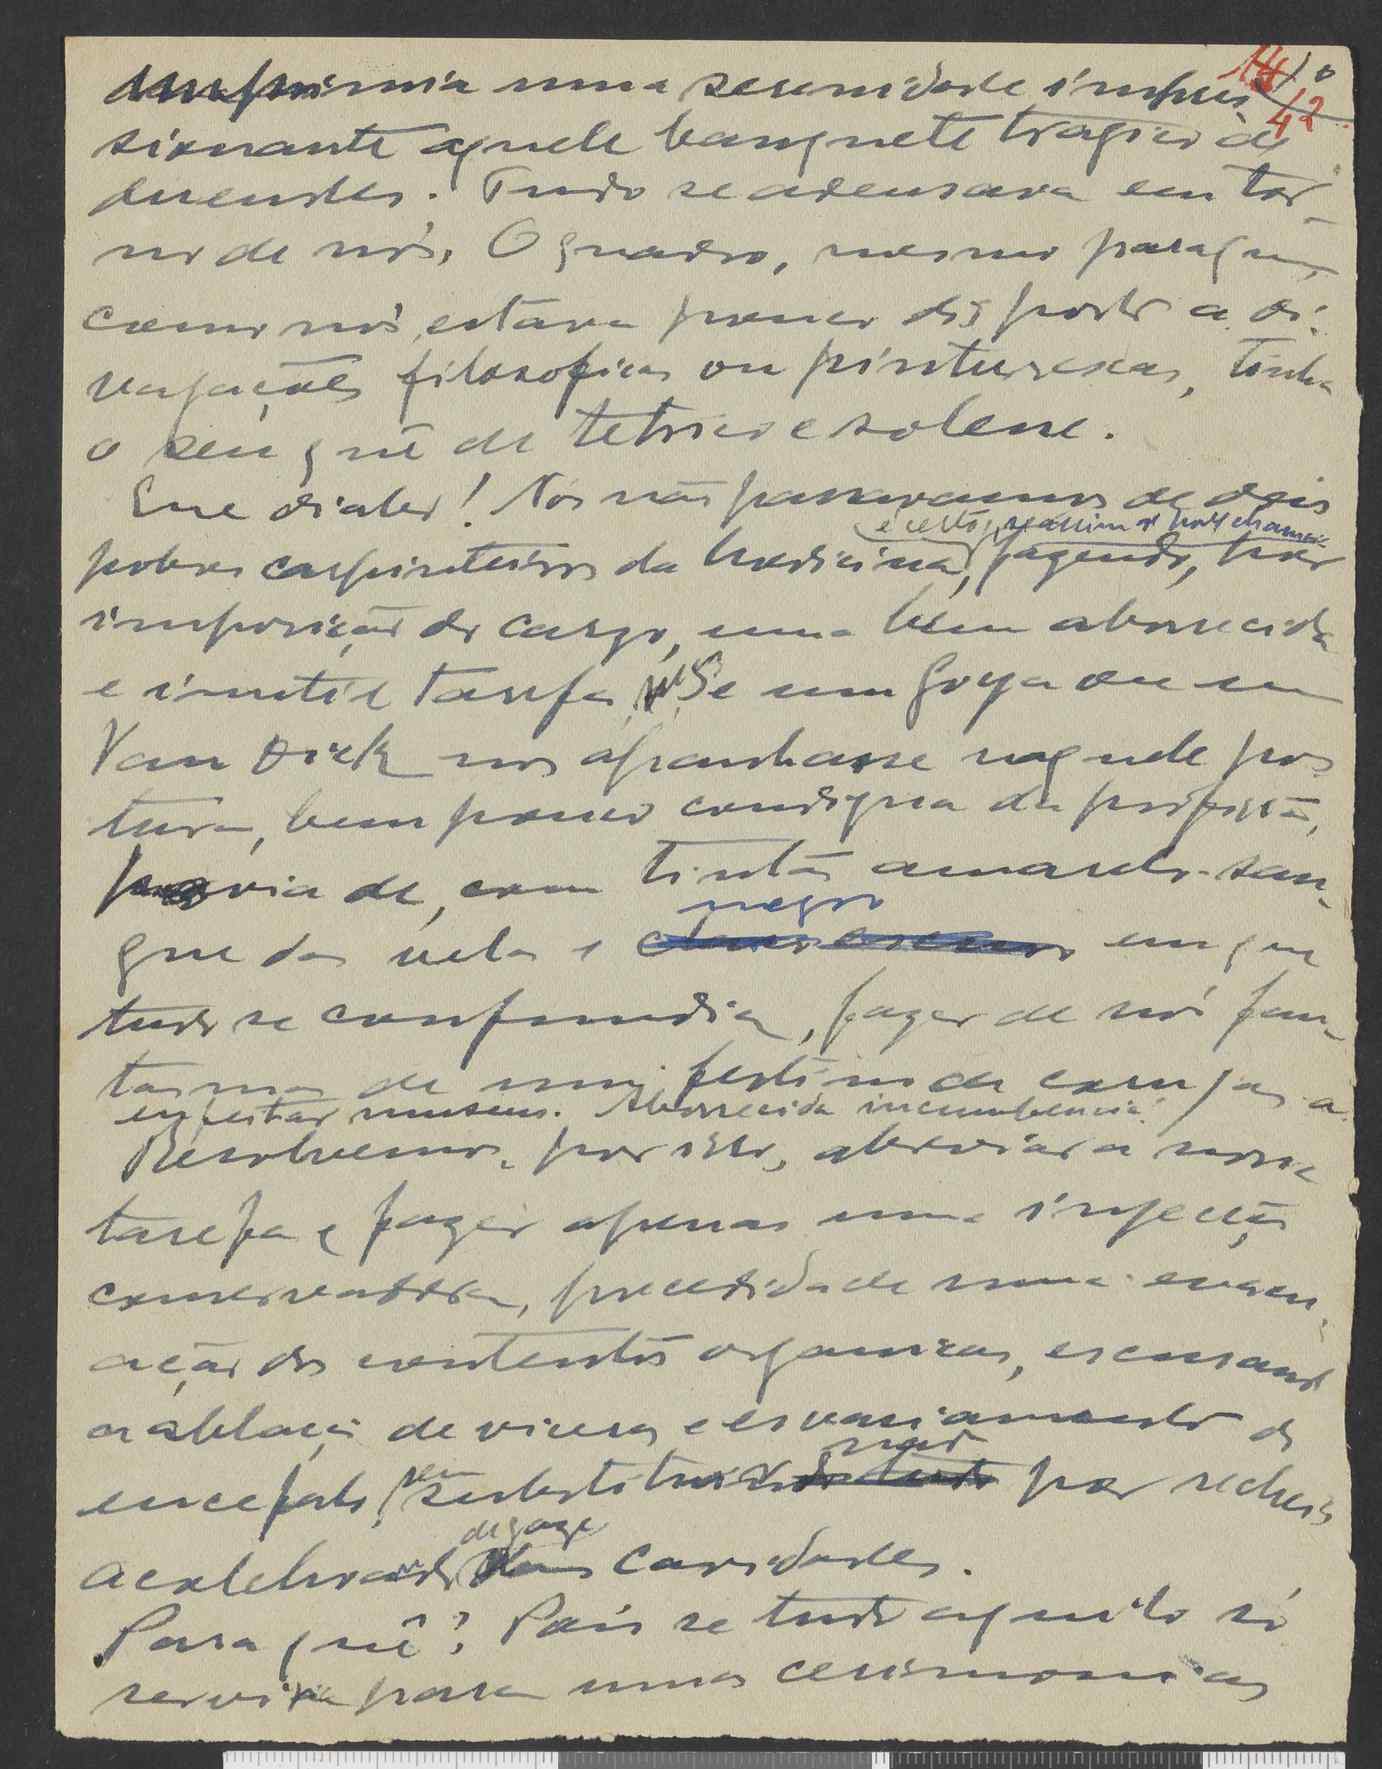 imprimia uma serenidade impres
sionante aquele banquete tragico de
duendes. Tudo se adensava em tor-
no de nós. O quadro, mesmo para quem,
como nós, estava pouco disposto a di-
vagações filosoficas ou pinturescas, tinha
o seu quê de tetrico e solene.
Que diabo! Nós não passavamos de dois
pobres carpinteiros da medicina, fazendo, por
imposição do cargo, uma bem aborrecida
e inutil tarefa. Se um Goya ou um
Van Dick nos apanhasse naquele pos
tura, bem pouco condigna da profissão,
havia de, com tinta amarelo-san-
gue das velas e
negro
em que
tudo se confundia, fazer de nós fan-
tasmas de um festim de corujas a
enfeitar museus. Aborrecida incumbencia!
Resolvemos, por isso, abreviar a nossa
tarefa e fazer apenas uma injeção
conservadora, precedida de uma evacu-
ação dos contentos organicos, escusando
a ablação de viceras e esvasiamento do
encefalo, sem substituir
nada
por recheio
de gaze
cavidades.
Para quê? Pois se tudo aquilo só
servia para umas cerimonias
10
42